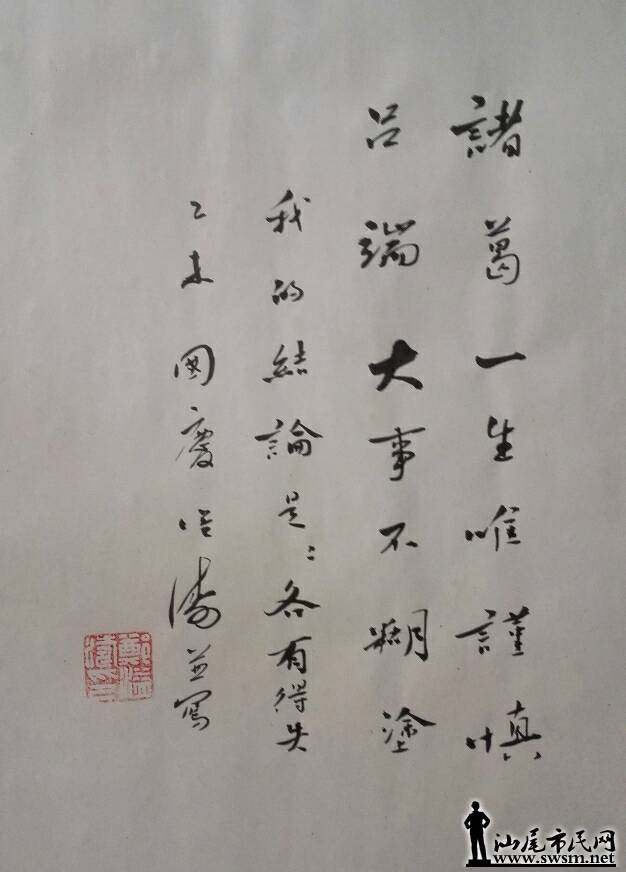 諸葛一生唯謹慎
吕端大事不糊塗
我的結論是：各有得失
乙未國慶 并寫
汕尾市民网
www.swsm.net